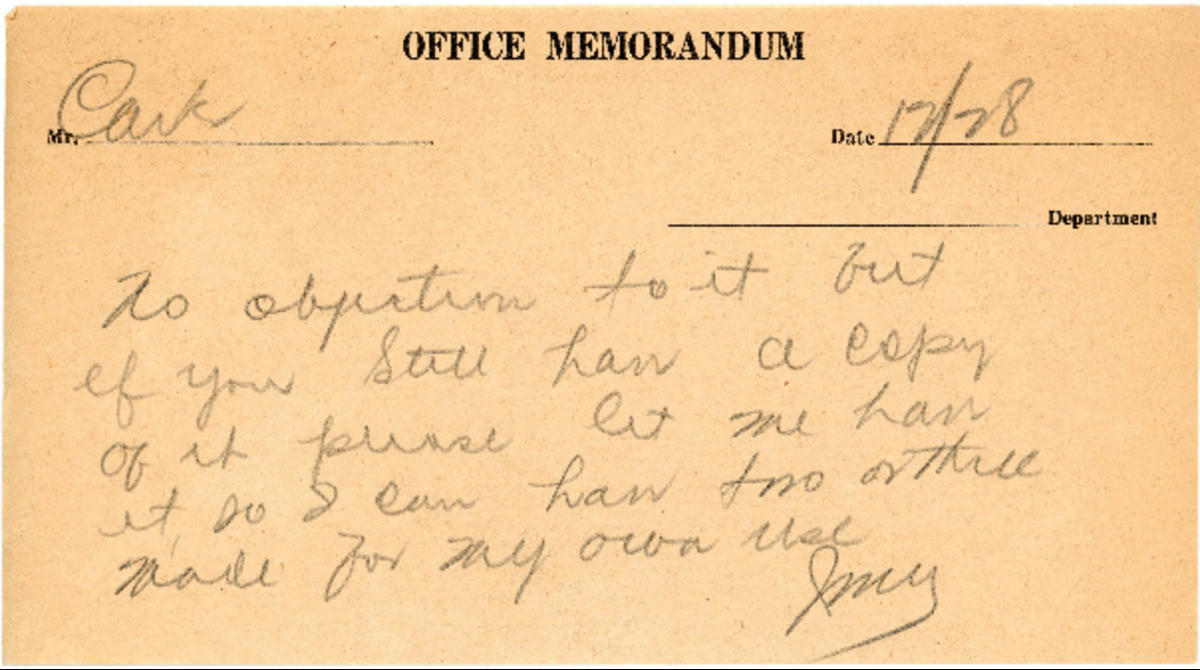 OFFICE MEMORANDUM
Mr. Cark
Date 12/28
Department
No objection to it but
if you still have a copy
of it please let me have
it, so I can have two or three
made for my own use